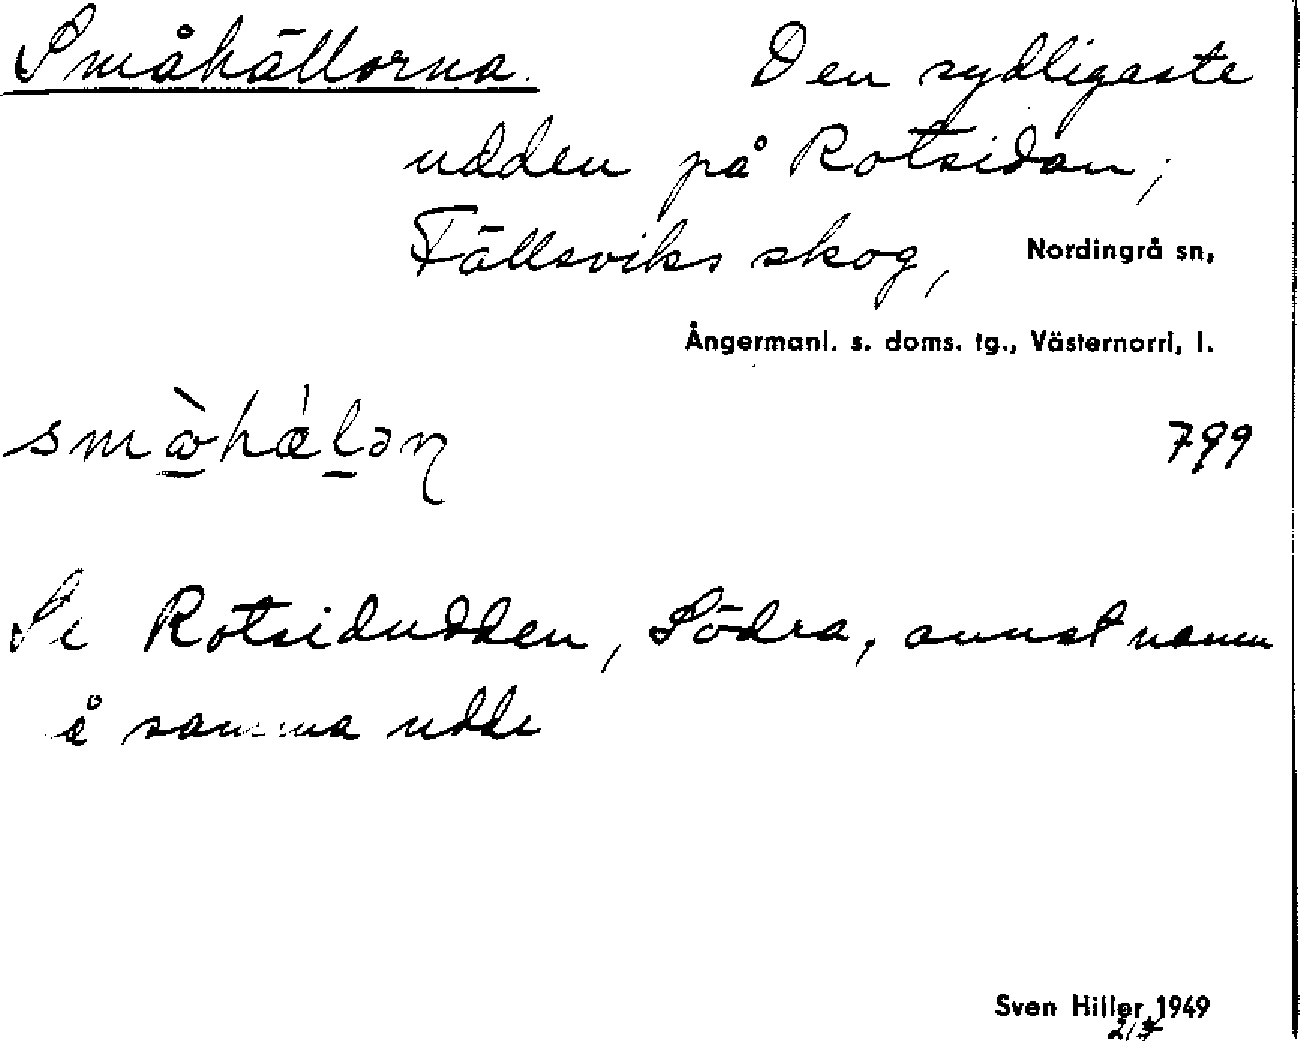 Småhällorna. Den sydligaste
udden på Rotsidan,
Fällsviks skog, Nordingrå sn,
Ångermanl. s. doms. tg., Västernorrl, l.
799
Se Rotsidudden, Södra, annat namn
å samma udde
Sven Hiller 1949